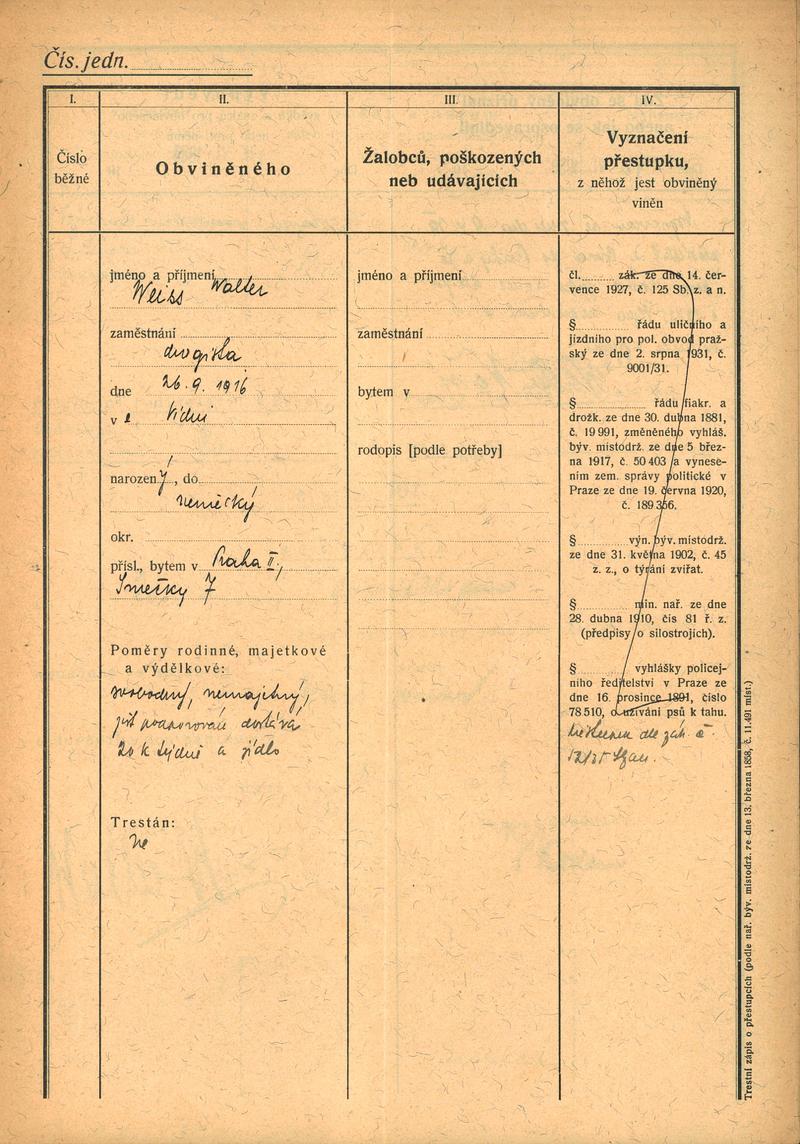 Čís. jedn.
I.
II.
III.
IV.
Číslo
běžné
Obviněného
Žalobců, poškozených
neb udávajících
Vyznačení
přestupku,
z něhož jest obviněný
viněn
jméno a příjmení
Weiss Walter
zaměstnání
drogista
dne 26.9. 1916
v Vídni
narozený, do
německý
okr.
přísl., bytem v Praha II,
Smečky 7
Poměry rodinné, majetkové
a výdělkové:
svobodný, nemajetný,
20 K týdně a jídlo
Trestán:
ne
jméno a příjmení
zaměstnání
bytem v
rodopis [podle potřeby]
čl. zák. ze dne 14. čer-
vence 1927, č. 125 Sb. z. a n.
§ řádu uličního a
jízdního pro pol. obvod praž-
ský ze dne 2. srpna 1931, č.
9001/31.
§ řádu fiakr. a
drožk. ze dne 30. dubna 1881,
č. 19 991, změněného vyhláš.
býv. místodrž. ze dne 5 břez-
na 1917, č. 50 403 a vynese-
ním zem. správy politické v
Praze ze dne 19. června 1920,
č. 189 356.
§ výn. býv. místodrž.
ze dne 31. května 1902, č. 45
z. z., o týrání zvířat.
§ min. nař. ze dne
28. dubna 1910, čís 81 ř. z.
(předpisy o silostrojích).
§ vyhlášky policej-
ního ředitelství v Praze ze
dne 16. prosince 1891, číslo
78 510, o užívání psů k tahu.
dle zák. č.
Trestní zápis o přestupcích (podle nař. býv. místodrž. ze dne 13. března 1858, č. 11.491 míst.)